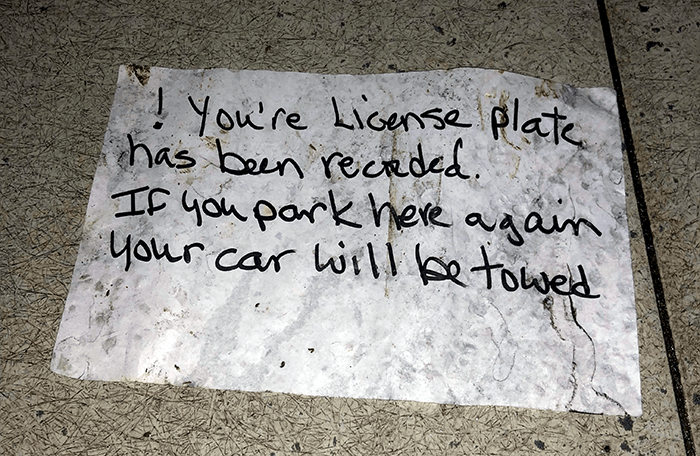 ! You're License plate
has been recorded.
If you park here again
your car will be towed